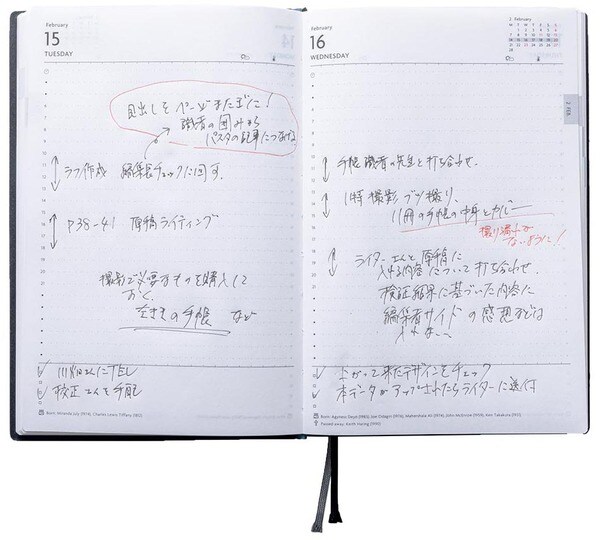 February
15
TUESDAY
見出しをページまたぎに!
識者の囲みから
パスタの記事につなげる
ラフ作成 編集長チェックに回す。
P38-41 原稿ライティング
撮影で必要なものを購入して
おく。
空きもの手帳 など
さんにTEL
校正さんを手配
Born: Miranda July (1974), Charles Lewis Tiffany (1812)
February
16
WEDNESDAY
2 February
2 FEB.
手帳識者の先生と打ち合わせ。
1特撮影 ブツ撮り。
11冊の手帳の中身とカバー
撮り漏れが
ないように!
ライターさんと原稿に
入れる内容について打ち合わせ。
検証結果に基づいた内容に
編集者サイドの感想などは
入れない…
上がって来たデザインをチェック
本データがアップされたらライターに送付
Born: Agyness Deyn (1983), Joe Odagiri (1976), Mahershala Ali (1974), John McEnroe (1959), Ken Takakura (1931)
Passed away: Keith Haring (1990)